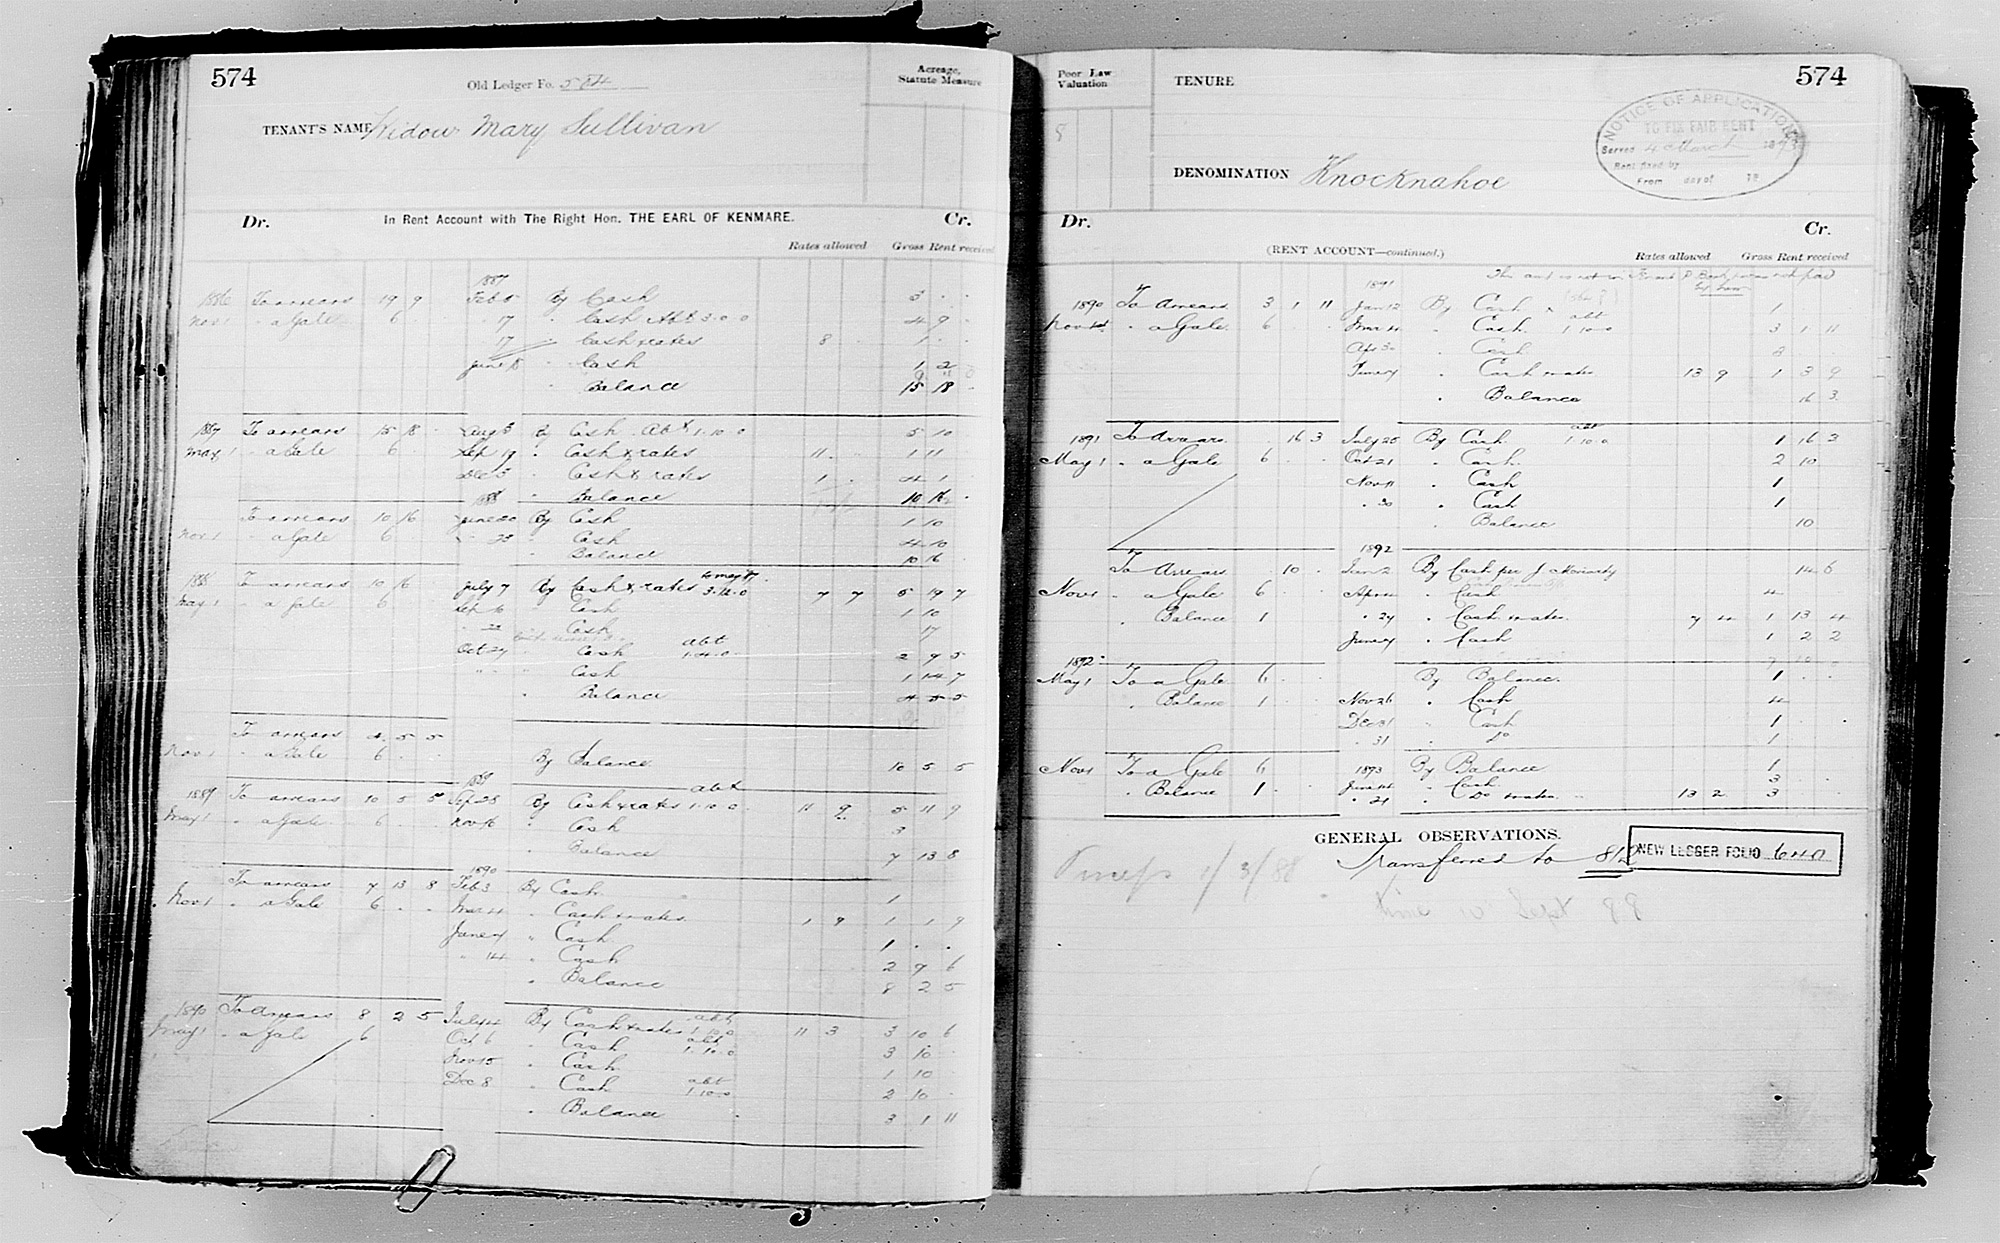 574
Old Ledger Fo. 584
Acreage,
Statute Measure
TENANT'S NAME Widow Mary Sullivan
Dr. In Rent Account with The Right Hon. THE EARL OF KENMARE. Cr.
Rates allowed Gross Rent received
1887
1886 To arrears 19 9 Feb 5 By Cash 3 . .
Nov 1 " a Gale 6 . 17 " Cash Abt 3.0.0 4 9 .
17 " Cash & rates 8 . 1 .
June 8 " Cash 1 2
" Balance 15 18 .
1887 To arrears 15 18 . Aug 3 By Cash Abt 1.10.0 5 10
May 1 " a Gale 6 . Sep 19 " Cash & rates 11 . 1 11
Dec 3 " Cash & rates 1 . 4 1
1888 " Balance 10 16 .
To arrears 10 16 June 20 By Cash 1 10
Nov 1 " a Gale 6 . " 23 " Cash 4 10
" Balance 10 16 .
1888 To arrears 10 16 July 7 By Cash & rates 3.12.0 7 7 5 19 7
May 1 " a Gale 6 . Sep 16 " Cash 1 10
" 22 " Cash 17
Oct 27 " Cash abt 1.4.0 2 9 5
" " " Cash 1 14 7
" Balance 4 5 5
To arrears 4 5 5
Nov 1 " a Gale 6 . . By Balance 10 5 5
1889
1889 To arrears 10 5 5 Sep 28 By Cash & rates abt 1.10.0 11 9 5 11 9
May 1 " a Gale 6 . . Nov 16 " Cash 3
" Balance 7 13 8
1890
To arrears 7 13 8 Feb 3 By Cash 1
Nov 1 " a Gale 6 . . Mar 4 " Cash & rates 1 9 1 1 9
June 7 " Cash 1 . .
" 14 " Cash 2 9 6
" Balance 8 2 5
1890 To Arrears 8 2 5 July 22 By Cash & rates abt 1.10.0 11 3 3 10 6
May 1 " a Gale 6 Oct 6 " Cash abt 1.10.0 3 10 .
Nov 15 " Cash 1 10
Dec 8 " Cash abt 1.10.0 2 10 .
" Balance 3 1 11
Poor Law
Valuation
TENURE
574
NOTICE OF APPLICATION
TO FIX FAIR RENT
Served 4 March 1893
Rent fixed by
From day of 18
DENOMINATION Knocknahoe
Dr. Cr.
(RENT ACCOUNT—continued.)
Rates allowed Gross Rent received
1891
1890 To Arrears 3 1 11 Jan 12 By Cash 1
Nov 1st " a Gale 6 . . Mar 4 " Cash abt 1.10.0 3 1 11
Apr 30 " Cash 3
June 4 " Cash & rates 13 9 1 3 9
" Balance 16 3
1891 To Arrears . 16 3 July 28 By Cash abt 1.10.0 1 16 3
May 1 " a Gale 6 . . Oct 21 " Cash 2 10
Nov 11 " Cash 1
" 30 " Cash 1
" Balance 10
1892
To Arrears . 10 . Jan 2 By Cash per J Moriarty 14 6
Nov 1 " a Gale 6 Apr " Cash 4
" Balance 1 " 27 " Cash & rates 7 4 1 13 4
June 4 " Cash 1 2 2
1892
May 1 To a Gale 6 . . By Balance 1 . .
" Balance 1 . . Nov 26 " Cash 4
Dec 31 " Cash 1 . .
" 31 " Do 1
Nov 1 To a Gale 6 1893 By Balance 1
" Balance 1 June 14 " Cash 3 . .
" 21 " Do & rates 13 2 3
GENERAL OBSERVATIONS.
Transferred to 812
NEW LEDGER FOLIO 640
1/3/88
10 Sept 88